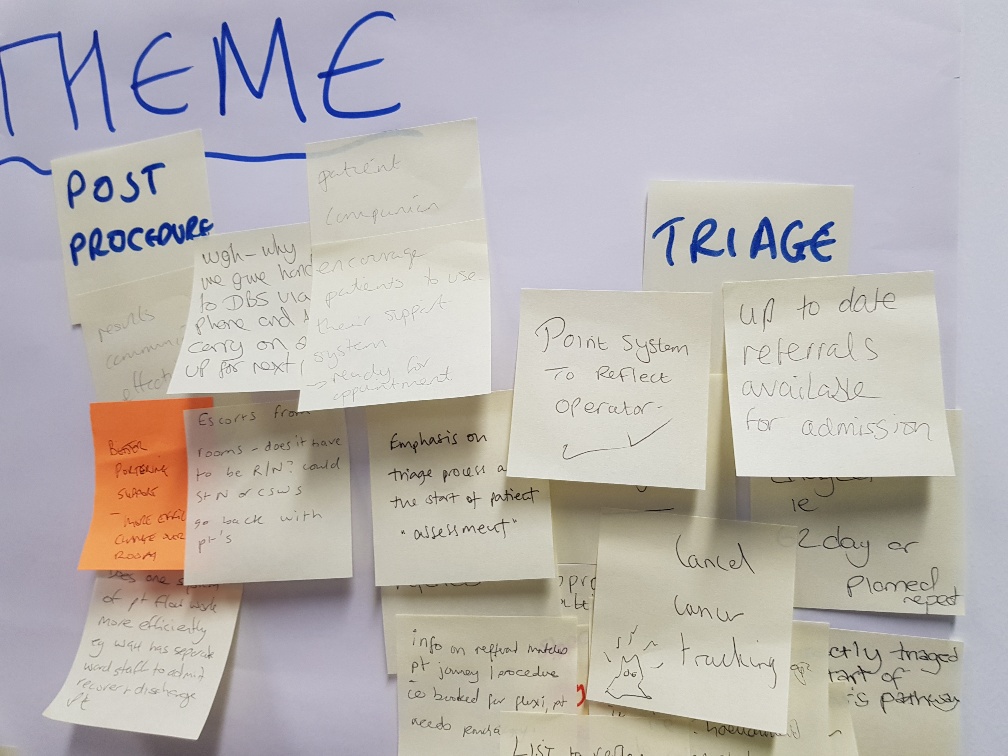 THEME
POST
PROCEDURE
results
patient
companion
encourage
patients to use
their support
system
→ ready for
appointment
WGH - why
we give hand
to DBS via
phone and
carry on
up for next
Better
Portering
support
- more
change over
room
Escorts from
rooms - does it have
to be R/N? could
St N or CSWs
go back with
pt's
Does one
of pt flow work
more efficiently
eg WGH has separate
ward staff to admit
recover + discharge
pt
Emphasis on
triage process a
the start of patient
"assessment"
TRIAGE
Point System
To Reflect
operator
up to date
referrals
available
for admission
ie
62 day or
Planned
repeat
Cancel
cancer
tracking
info on referral matches
pt journey / procedure
ie booked for flexi, pt
needs
ctly triaged
tart of
is pathway
LIST to